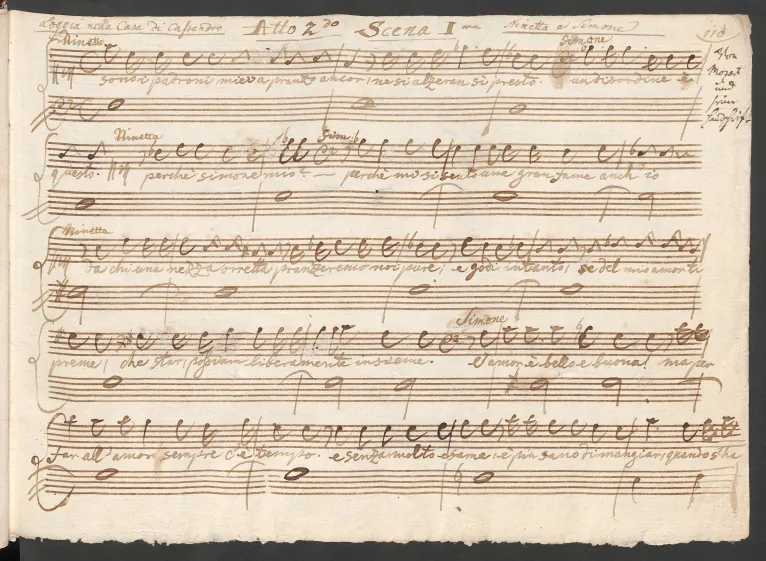 Loggia nella Casa di Cassandro Atto 2do Scena I ma Ninetta e Simone
118
Von
Mozart
und
seine
Handschrift
Ninetta Simone
sono i padroni miei a pranzo ancor, ne si alzeran si presto. un disordine è
Ninetta Simone
questo. perché simone mio? perché mi si sento una gran fame anch'io
Ninetta
da chi una mezza orretta pranzeremo noi pure, e godi intanto, se del mio amor ti
Simone
preme, che star possiam liberamente insieme. L'amor è bello e buono! ma per
far all'amor sempre c'è tempo. e senza molto esame è più sano di mangiar, quando s'ha